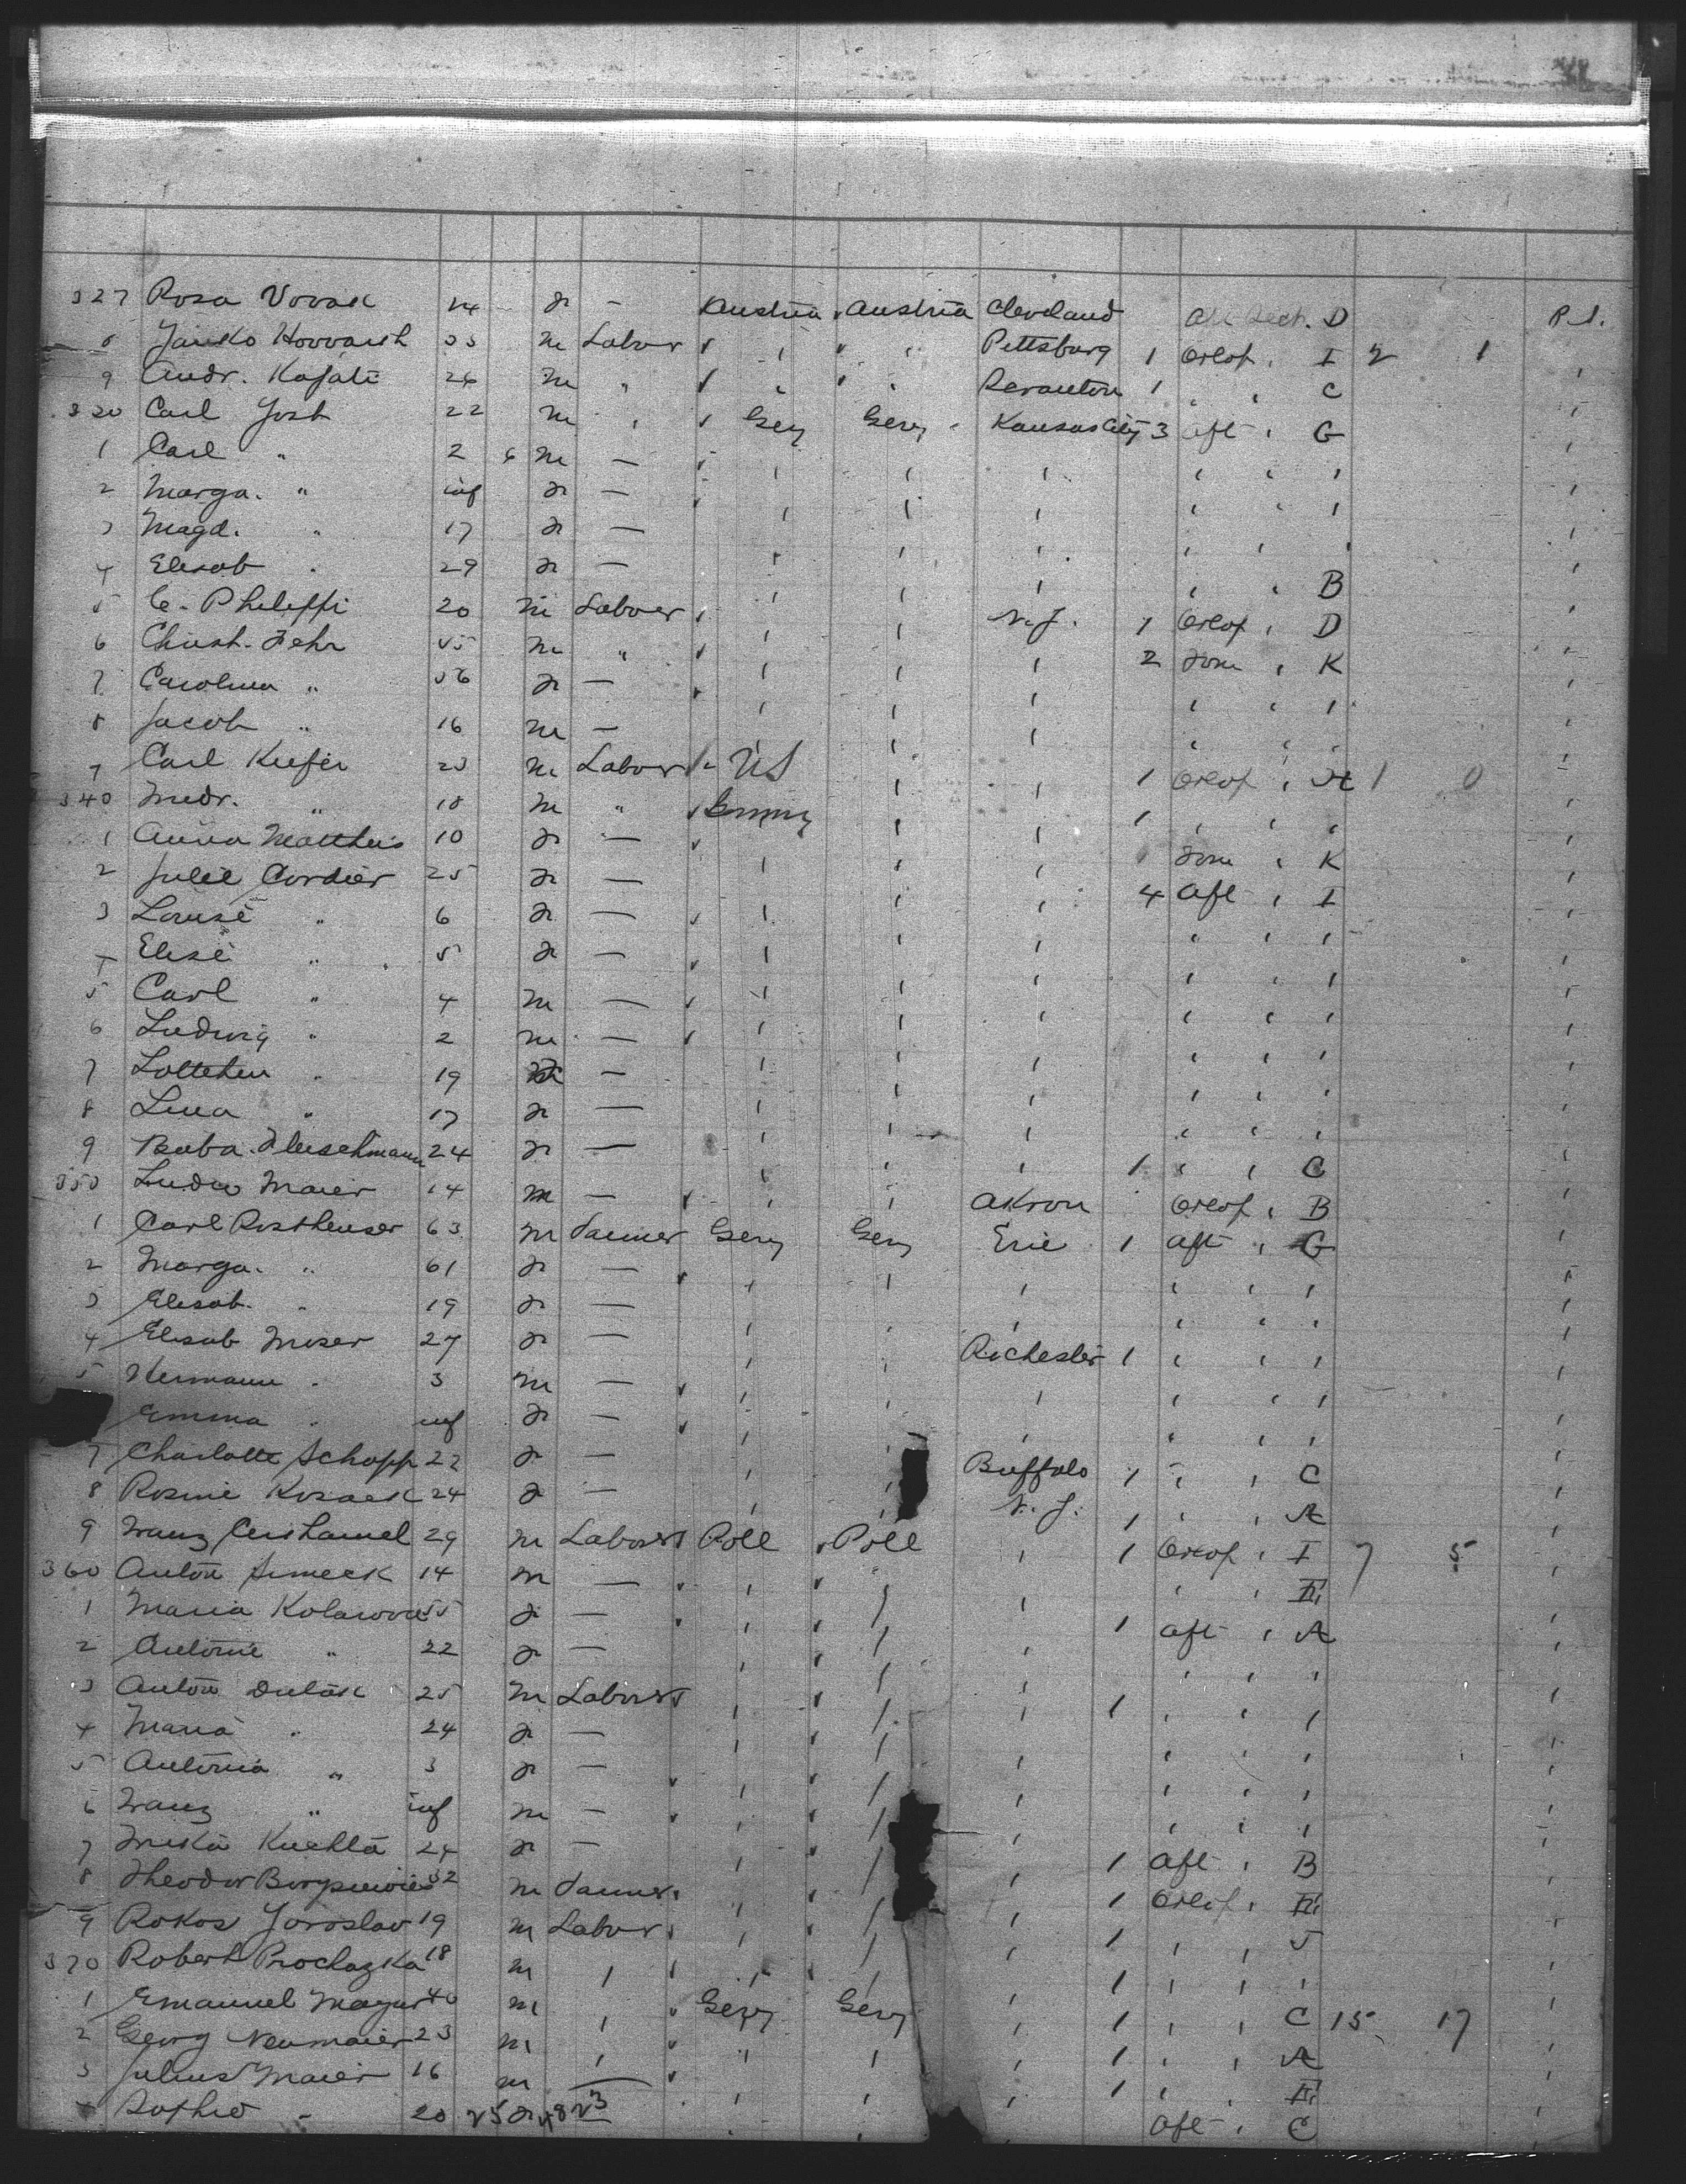 327 Rosa Vovak 14 F — Austria Austria Cleveland Aft Sect. D P. S.
8 Janko Horvarth 33 M Labor " " Pittsburg 1 Orlop " I 2 1
9 Andr. Kafati 26 M " " " Scranton 1 " " C
330 Carl Jost 22 M " Gery Gery Kansas City 3 Aft " G
1 Carl " 2 6 M — " " " " " "
2 Marga. " inf F — " " " " " "
3 Magd. " 17 F — " " " " " "
4 Elisab " 29 F — " " " " " B
5 C. Philippi 20 M Laborer " " N. J. 1 Orlop " D
6 Christ. Fehr 55 M " " " " 2 Fore " K
7 Carolina " 56 F — " " " " " "
8 Jacob " 16 M — " " " " "
9 Carl Kiefer 23 M Labor US " " 1 Orlop " A 1 0
340 " 18 M " Germy " " 1 " " "
1 Anna Matthis 10 F — " " " 1 Fore " K
2 Julie Cordier 25 F — " " " 4 Aft " I
3 Louise " 6 F — " " " " " "
4 Elise " 5 F — " " " " " "
5 Carl " 4 M — " " " " " "
6 Ludwig " 2 M — " " " " " "
7 Lottchen " 19 — " " " " " "
8 Lina " 17 F — " " " " " "
9 Baba. Fleischmann 24 F — " " " 1 " " C
350 Ludw Maier 14 M — " " Akron Orlop " B
1 Carl Rosthenser 63 M Farmer Gery Gery Erie 1 Aft " G
2 Marga. " 61 F — " " " " " "
3 Elisab. " 19 F — " " " " " "
4 Elisab Moser 27 F — " " Rochester 1 " " "
5 Hermann " 3 M — " " " " " "
Emma " inf F — " " " " " "
7 Charlotte Schopp 22 F — " " Buffalo 1 " " C
8 Rosine Kosack 24 F — " " N. J. 1 " " A
9 Franz 29 M Labor Poll Poll " 1 Orlop " I 7 5
360 Anton Simeck 14 M — " " " " "
1 Maria 55 F — " " " 1 Aft " A
2 Antonie " 22 F — " " " " " "
3 Anton Dulak 25 M Labor " " " 1 " " "
4 Maria " 24 F — " " " " " "
5 Antonia " 3 F — " " " " " "
6 Franz " inf M — " " " " " "
7 Kuchta 24 F — " " " 1 Aft " B
8 Theodor 32 M Farmer " " " 1 Orlop "
9 Rokos Joroslav 19 M Labor " " " 1 " " J
370 Robert Prochazka 18 M " " " " 1 " " "
1 Emanuel Mayur 40 M " Gery Gery " 1 " " C 15 17
2 Georg Neumaier 23 M " " " " 1 " " A
3 Julius Maier 16 M — " " " 1 " "
4 Sophie " 20 F " " " Aft " C